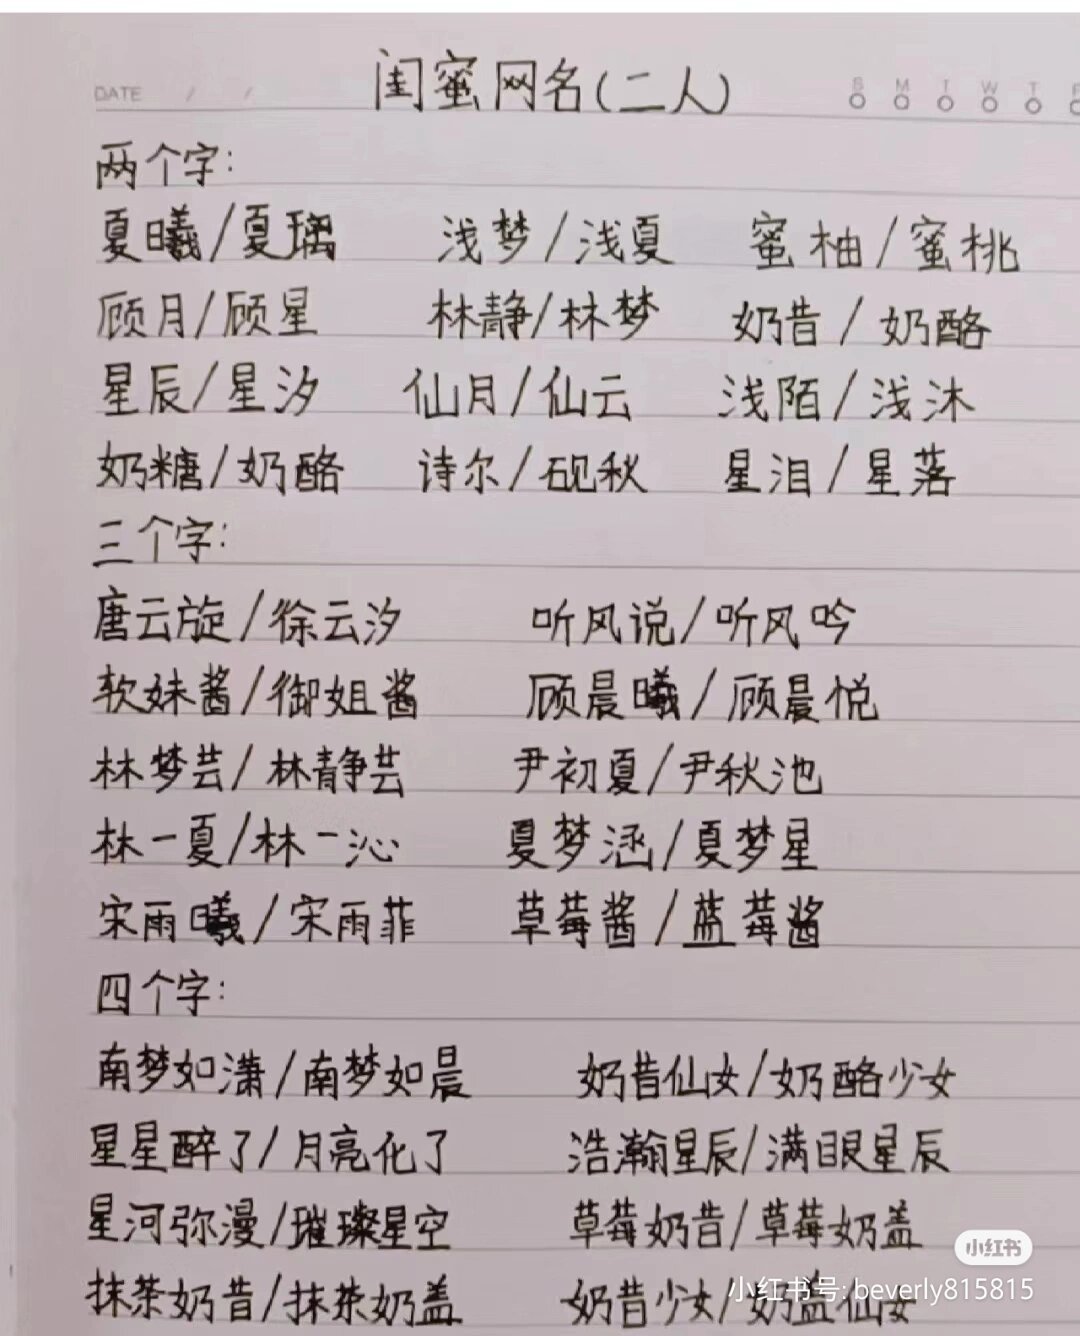 DATE / / 闺蜜网名(二人) S M T W T F
两个字:
夏曦/夏璃 浅梦/浅夏 蜜柚/蜜桃
顾月/顾星 林静/林梦 奶昔/奶酪
星辰/星汐 仙月/仙云 浅陌/浅沐
奶糖/奶酪 诗尔/砚秋 星泪/星落
三个字:
唐云旋/徐云汐 听风说/听风吟
软妹酱/御姐酱 顾晨曦/顾晨悦
林梦芸/林静芸 尹初夏/尹秋池
林一夏/林一沁 夏梦涵/夏梦星
宋雨曦/宋雨菲 草莓酱/蓝莓酱
四个字:
南梦如潇/南梦如晨 奶昔仙女/奶酪少女
星星醉了/月亮化了 浩瀚星辰/满眼星辰
星河弥漫/璀璨星空 草莓奶昔/草莓奶盖
抹茶奶昔/抹茶奶盖 奶昔少女/奶盖仙女
小红书
小红书号: beverly815815